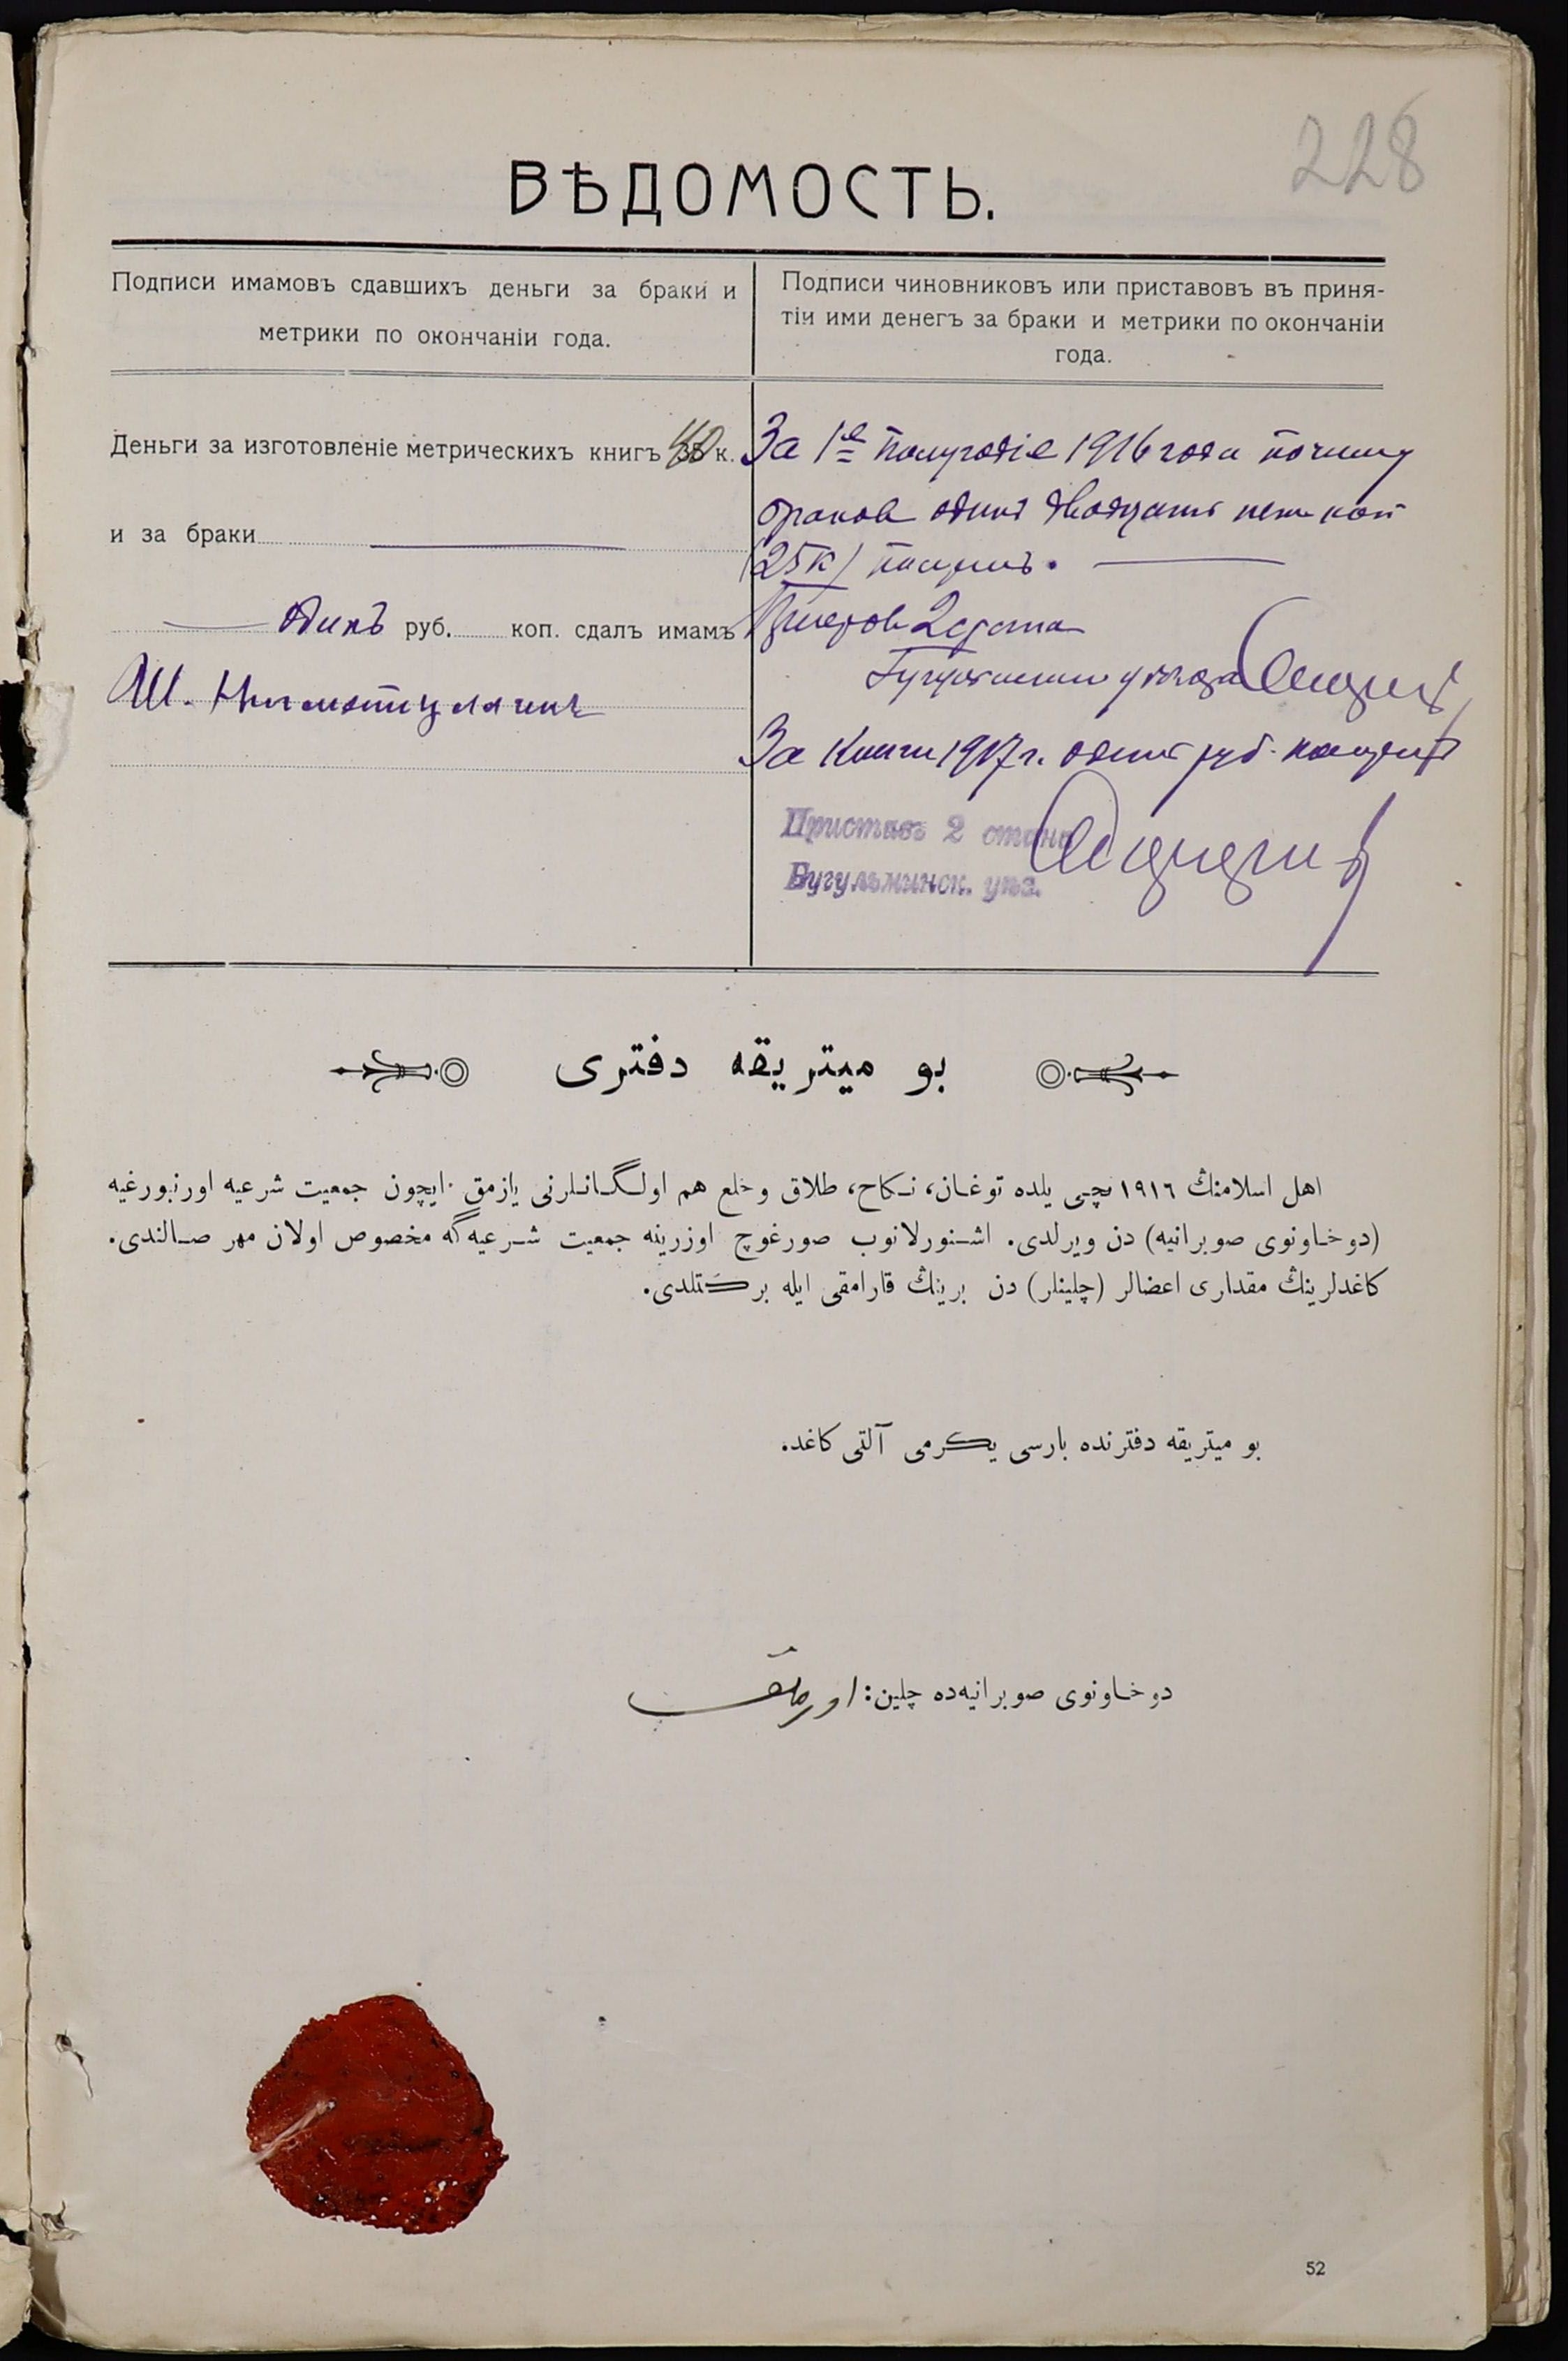 228
ВѢДОМОСТЬ.
Подписи имамовъ сдавшихъ деньги за браки и
метрики по окончаніи года.
Подписи чиновниковъ или приставовъ въ приня-
тіи ими денегъ за браки и метрики по окончаніи
года.
Деньги за изготовленіе метрическихъ книгъ 40 к.
и за браки
Одинъ руб. коп. сдалъ имамъ
Ш. Нигматуллинъ
За 1е полугодіе 1916 года
браковъ одинъ двадцать коп
(25 к) получилъ.
Приставъ 2 стана
Бугульминск уѣзда
За книги 1917 г. одинъ руб. получилъ
Приставъ 2 стана
Бугульминск. уѣз.
بو ميتريقه دفترى
اهل اسلامنڭ ١٩١٦ نچى يلده توغان، نكاح، طلاق وخلع هم اولگانلرنى يازمق ايچون جمعيت شرعيه اورنبورغيه
(دوخاونوى صوبرانيه) دن ويرلدى. اشنورلانوب صورغوچ اوزرينه جمعيت شرعيه‌گه مخصوص اولان مهر صالندى.
كاغدلرينڭ مقدارى اعضالر (چلينلر) دن برينڭ قارامقى ايله بركتلدى.
بو ميتريقه دفترنده بارسى يكرمى آلتى كاغد.
دوخاونوى صوبرانيه‌ده چلين:
52